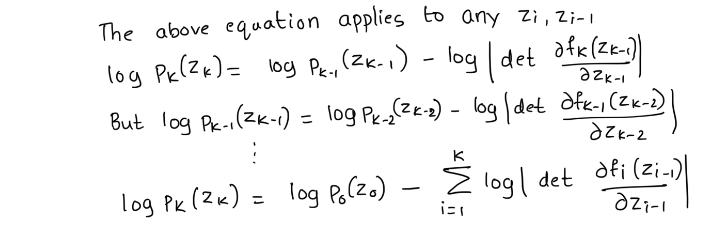 The above equation applies to any z_i, z_{i-1}
log P_K(z_K) = log P_{K-1}(z_{K-1}) - log | det ∂f_K(z_{K-1}) / ∂z_{K-1} |
But log P_{K-1}(z_{K-1}) = log P_{K-2}(z_{K-2}) - log | det ∂f_{K-1}(z_{K-2}) / ∂z_{K-2} |
⋮
log P_K(z_K) = log P_0(z_0) - ∑_{i=1}^{K} log | det ∂f_i(z_{i-1}) / ∂z_{i-1} |